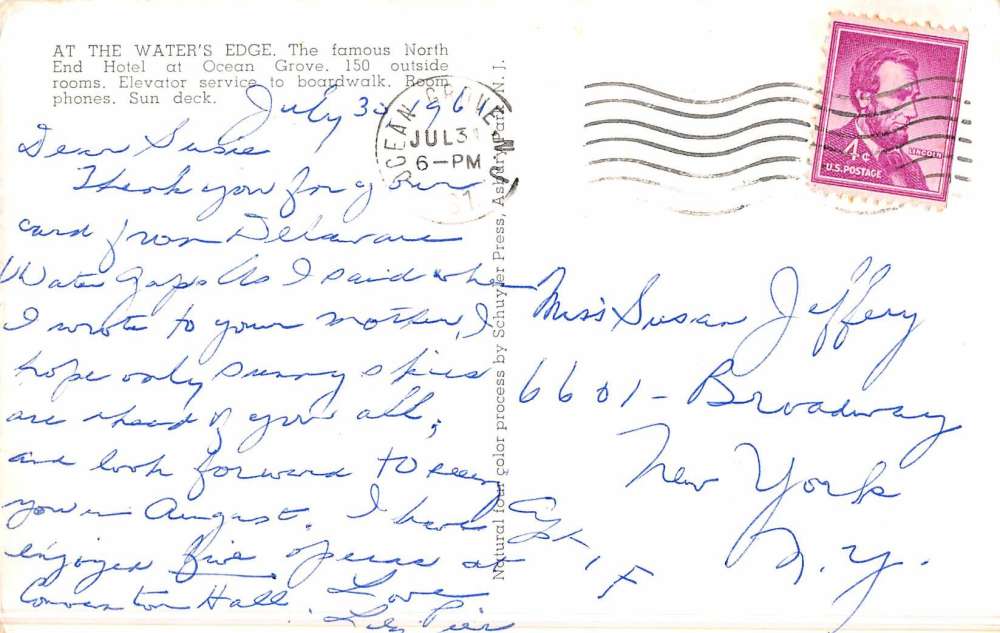 AT THE WATER'S EDGE. The famous North
End Hotel at Ocean Grove. 150 outside
rooms. Elevator service to boardwalk. Room
phones. Sun deck.
July 30 1961
Dear Susie
Thank you for your
card from Delaware
Water Gap. As I said when
I wrote to your mother, I
hope only sunny skies
are ahead of you all,
and look forward to seeing
you in August. I have
enjoyed five operas at
Convention Hall. Love
OCEAN GROVE
JUL 31
6-PM
N.J.
Natural four color process by Schuyler Press, Asbury Park, N. J.
LINCOLN
4¢
U.S. POSTAGE
Miss Susan Jeffery
6601 - Broadway
New York
Apt, F
N.Y.